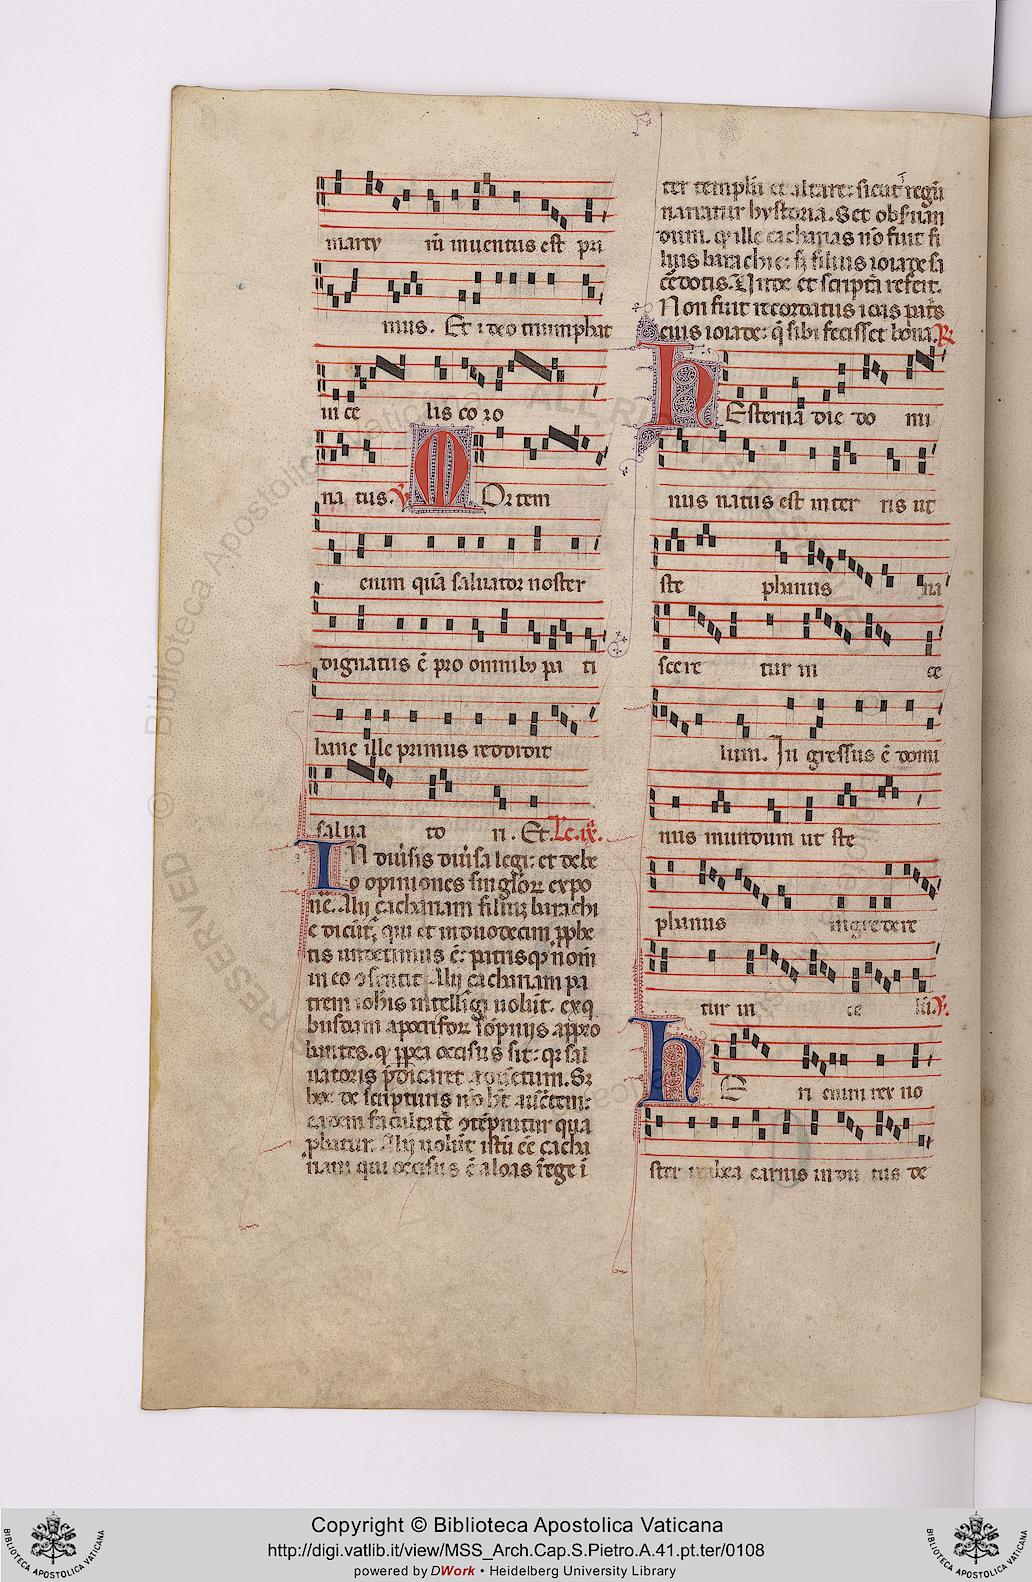 marty rū inuentus est pri
mus. Et ideo triumphat
in ce lis co ro
na tus. ℣. MOrtem
enim quā saluator noster
dignatus ē pro omnibꝫ pa ti
hanc ille primus reddidit
salua to ri. Et Lc. ix.
IN diuīsis diuīsa legi: et debe
o opiniones singlor̄ expo
ne. Alij çachariam filiū barachi
e dicūt, qui et in duodecim ꝓphe
tis undecimus ē: patrisqꝫ nom̄
in eo ↄsentit. Alij çachariam pa
trem ioh̄is intelligi uolūt. ex q
busdam apocrifor̄ sōpnijs appro
bantes. ꝙ ꝓpt̄ea occisus sit: qꝛ sal
uatoris p̄dicaret aduētum. Sꝫ
hoc de scripturis nō hꝫ auctem:
eadem facultate ↄtēpnitur qua
ꝓbatur. Alij uolūt istū eē çacha
riam qui occisus ē a ioas rege i
ter templū et altare: sicut regū
narratur hystoria. Set obseruan
dum. ꝙ ille çacharias nō fuit fi
lius barachie: sꝫ filius ioiade sa
cēdotis. Unde et scriptā refert.
Non fuit recordatus ioas patris
eius ioiade: q̄ sibi fecisset bona. ℟
hEsternā die do mi
nus natus est in ter ris ut
ste phanus na
scere tur in ce
lum. In gressus ē domi
nus mundum ut ste
phanus ingredere
tur in ce lū. ℣.
hE ri enim rex no
ster trabea carnis indu tus de
Copyright © Biblioteca Apostolica Vaticana
http://digi.vatlib.it/view/MSS_Arch.Cap.S.Pietro.A.41.pt.ter/0108
powered by DWork • Heidelberg University Library